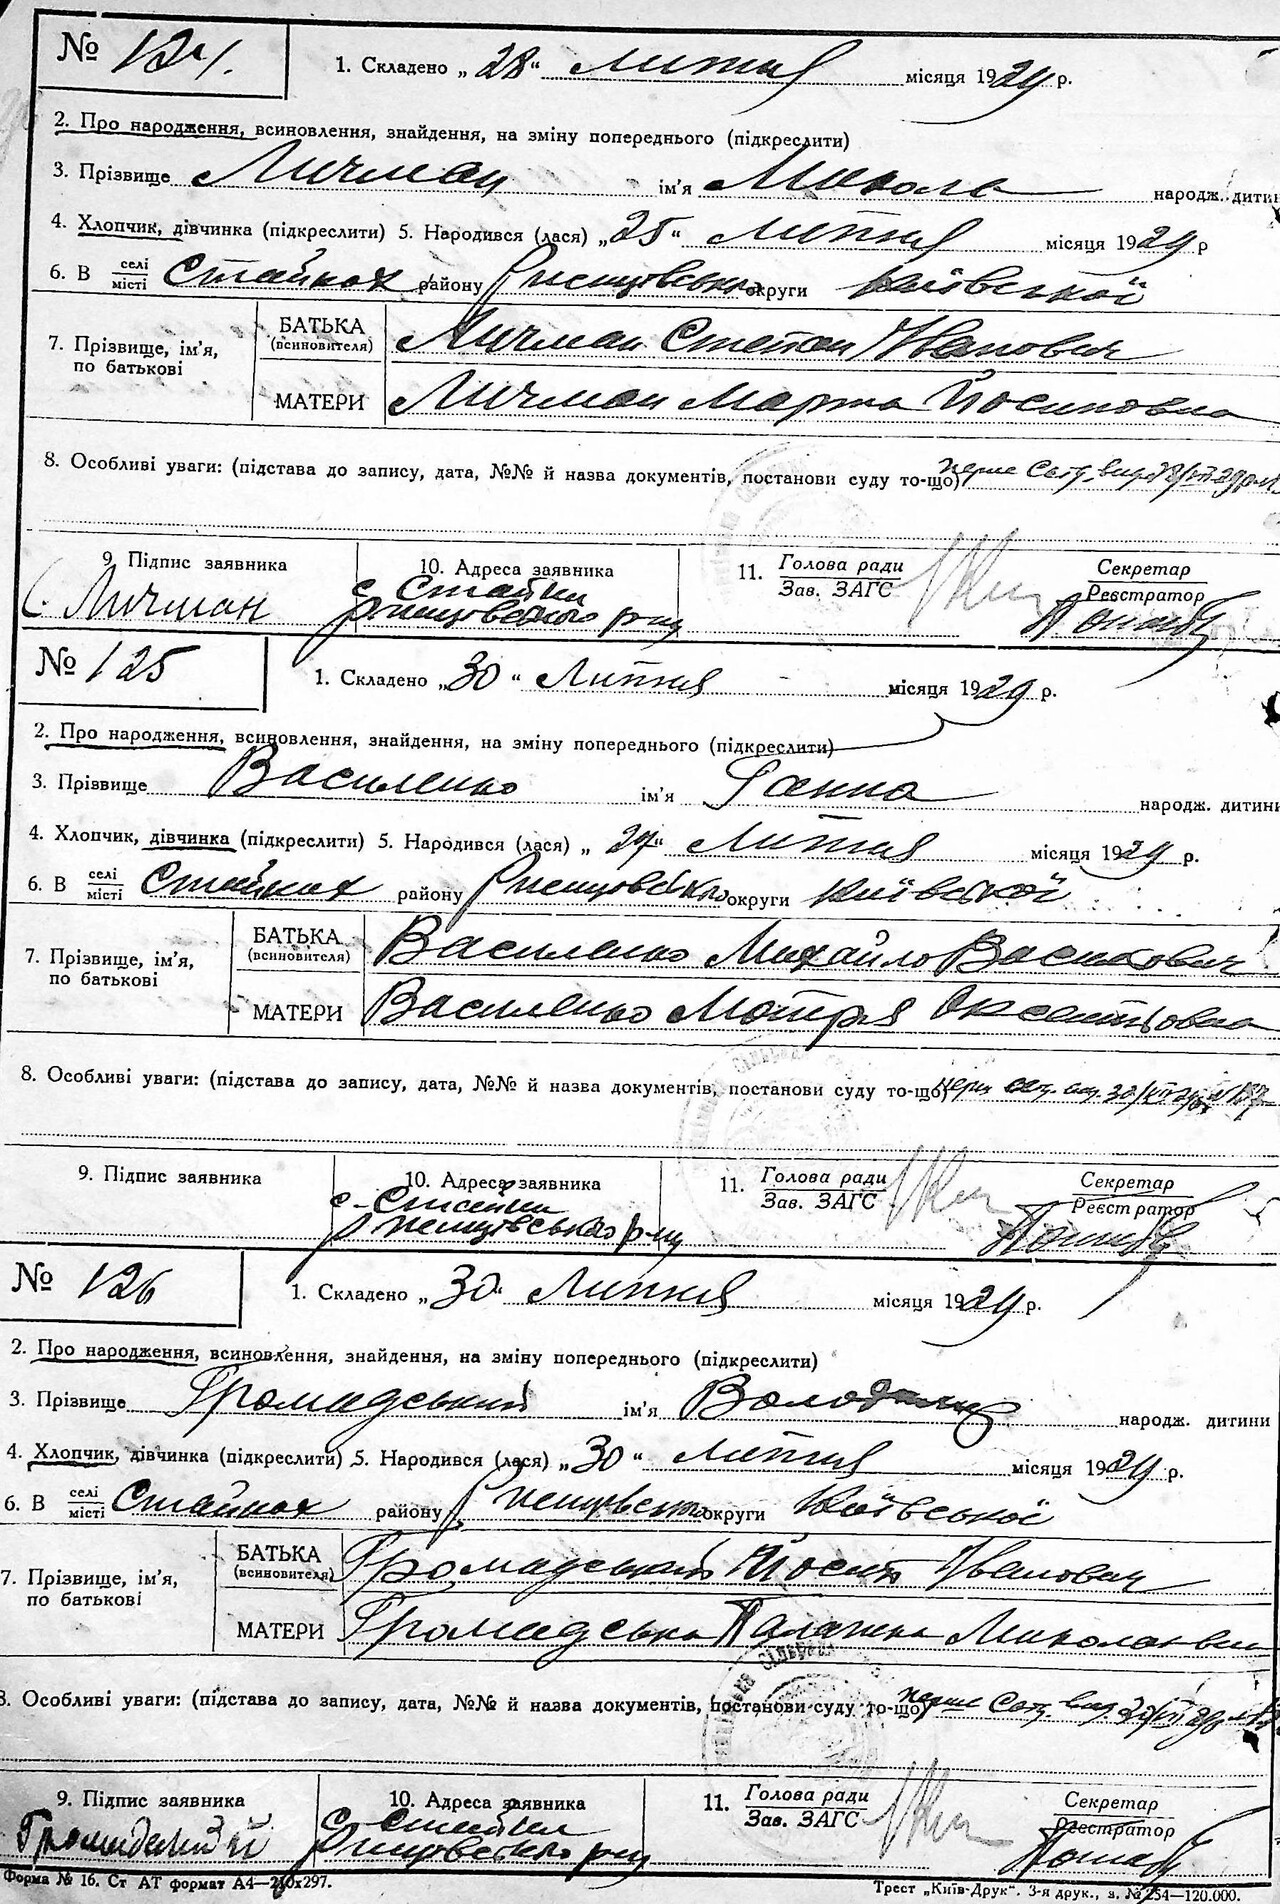 № 124.
1. Складено „ 28 “ Липня місяця 1929 р.
2. Про народження, всиновлення, знайдення, на зміну попереднього (підкреслити)
3. Прізвище Личман ім'я Микола народж. дитин
4. Хлопчик, дівчинка (підкреслити) 5. Народився (лася) „ 25 “ Липня місяця 1929 р
6. В селі місті Стайках району Ржищівськ округи Київської
7. Прізвище, ім'я, по батькові БАТЬКА (всиновителя) Личман Степан Иванович
МАТЕРИ Личман Марта Йосиповна
8. Особливі уваги: (підстава до запису, дата, №№ й назва документів, постанови суду то-що)
9. Підпис заявника 10. Адреса заявника 11. Голова ради Зав. ЗАГС Секретар Реєстратор
С. Личман с. Стайки
Ржищівського р-ну
№ 125
1. Складено „ 30 “ Липня місяця 1929 р.
2. Про народження, всиновлення, знайдення, на зміну попереднього (підкреслити)
3. Прізвище Василенко ім'я Ганна народж. дитини
4. Хлопчик, дівчинка (підкреслити) 5. Народився (лася) „ “ Липня місяця 1929 р.
6. В селі місті Стайках району Ржищівсько округи Київської
7. Прізвище, ім'я, по батькові БАТЬКА (всиновителя) Василенко Михайло Василович
МАТЕРИ Василенко Мотря Оксентіовна
8. Особливі уваги: (підстава до запису, дата, №№ й назва документів, постанови суду то-що)
9. Підпис заявника 10. Адреса заявника 11. Голова ради Зав. ЗАГС Секретар Реєстратор
с. Стайки
Ржищівського р-ну
№ 126
1. Складено „ 30 “ Липня місяця 1929 р.
2. Про народження, всиновлення, знайдення, на зміну попереднього (підкреслити)
3. Прізвище Громадський ім'я Володимир народж. дитини
4. Хлопчик, дівчинка (підкреслити) 5. Народився (лася) „ 30 “ Липня місяця 1929 р.
6. В селі місті Стайках району Ржищівсько округи Київської
7. Прізвище, ім'я, по батькові БАТЬКА (всиновителя) Громадський Йосип Іванович
МАТЕРИ Громадська Палажка Миколаївна
8. Особливі уваги: (підстава до запису, дата, №№ й назва документів, постанови суду то-що)
9. Підпис заявника 10. Адреса заявника 11. Голова ради Зав. ЗАГС Секретар Реєстратор
Громадський с. Стайки
Ржищівського р-ну
Форма № 16. Ст АТ формат А4—210х297. Трест „Київ-Друк“. 3-я друк., з. № 254—120.000.